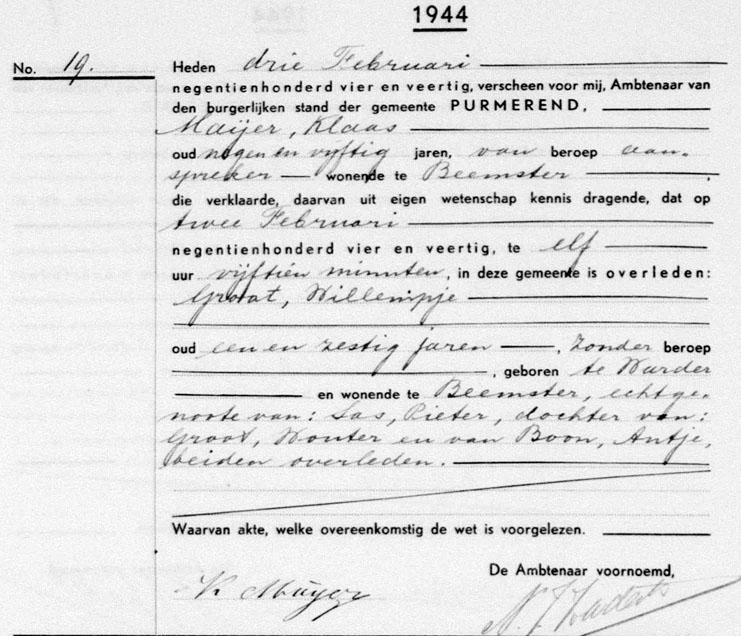 1944
No. 19.
Heden drie Februari
negentienhonderd vier en veertig, verscheen voor mij, Ambtenaar van
den burgerlijken stand der gemeente PURMEREND,
Maijer, Klaas
oud negen en vijftig jaren, van beroep aan-
spreker wonende te Beemster,
die verklaarde, daarvan uit eigen wetenschap kennis dragende, dat op
twee Februari
negentienhonderd vier en veertig, te elf
uur vijftien minuten, in deze gemeente is overleden:
Groot, Willempje
oud een en zestig jaren, zonder beroep
, geboren te Warder
en wonende te Beemster, echtge-
noote van: Las, Pieter, dochter van:
Groot, Wouter en van Boon, Antje,
beiden overleden.
Waarvan akte, welke overeenkomstig de wet is voorgelezen.
De Ambtenaar voornoemd,
K Maijer